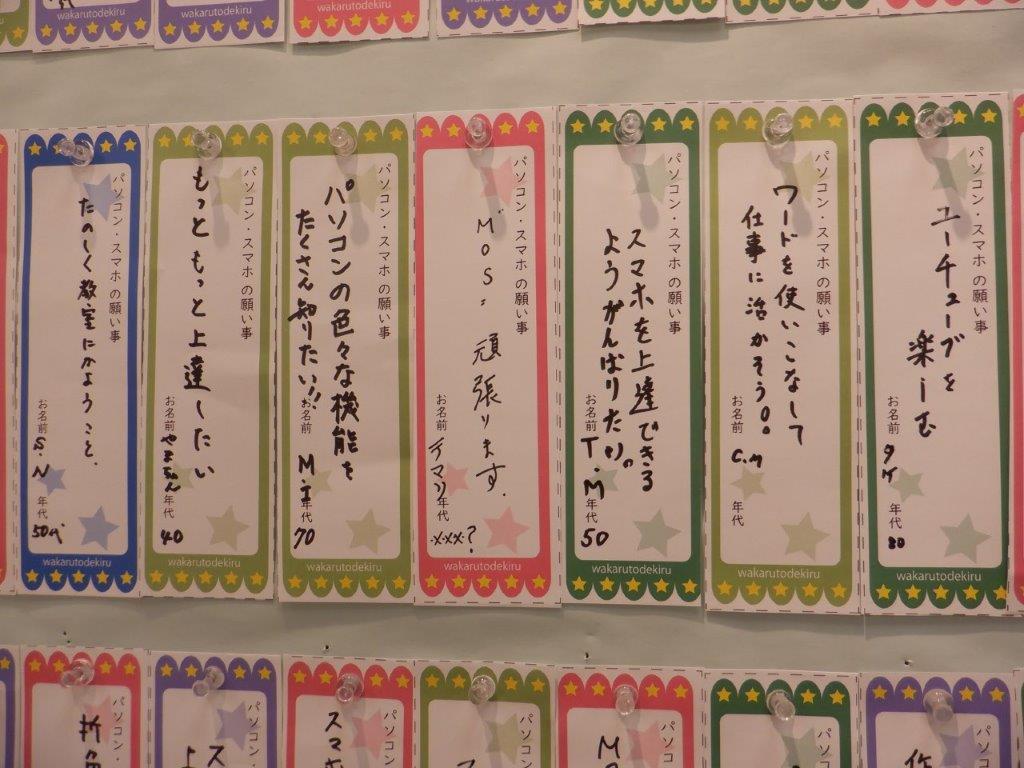 wakarutodekiru
wakarutodekiru
wakarutodekiru
wakarutodekiru
パソコン・スマホの願い事
たのしく教室にかようこと.
お名前 S.N 年代 50代
wakarutodekiru
パソコン・スマホの願い事
もっともっと上達したい
お名前 年代 40
wakarutodekiru
パソコン・スマホの願い事
パソコンの色々な機能を
たくさん知りたい!!
お名前 M.I 年代 70
wakarutodekiru
パソコン・スマホの願い事
MOS= 頑張ります.
お名前 年代 ・xxx?
wakarutodekiru
パソコン・スマホの願い事
スマホを上達できる
ようがんばりたい。
お名前 T.M 年代 50
wakarutodekiru
パソコン・スマホの願い事
ワードを使いこなして
仕事に治かそう。
お名前 年代
wakarutodekiru
パソコン・スマホの願い事
ユーチューブを
楽しむ
お名前 年代 80
wakarutodekiru
パソコン・
パソコン・ス
パソコン・ス
スマホ
パソコン・ス
パソコン・ス
パソコン・ス
パソコン・ス